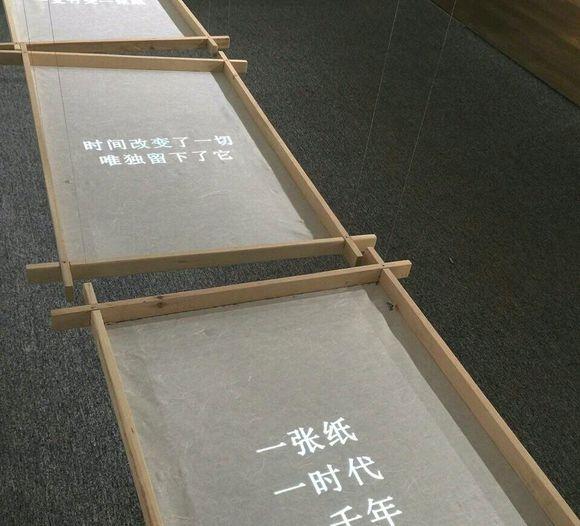 时间改变了一切
唯独留下了它
一张纸
一时代
千年